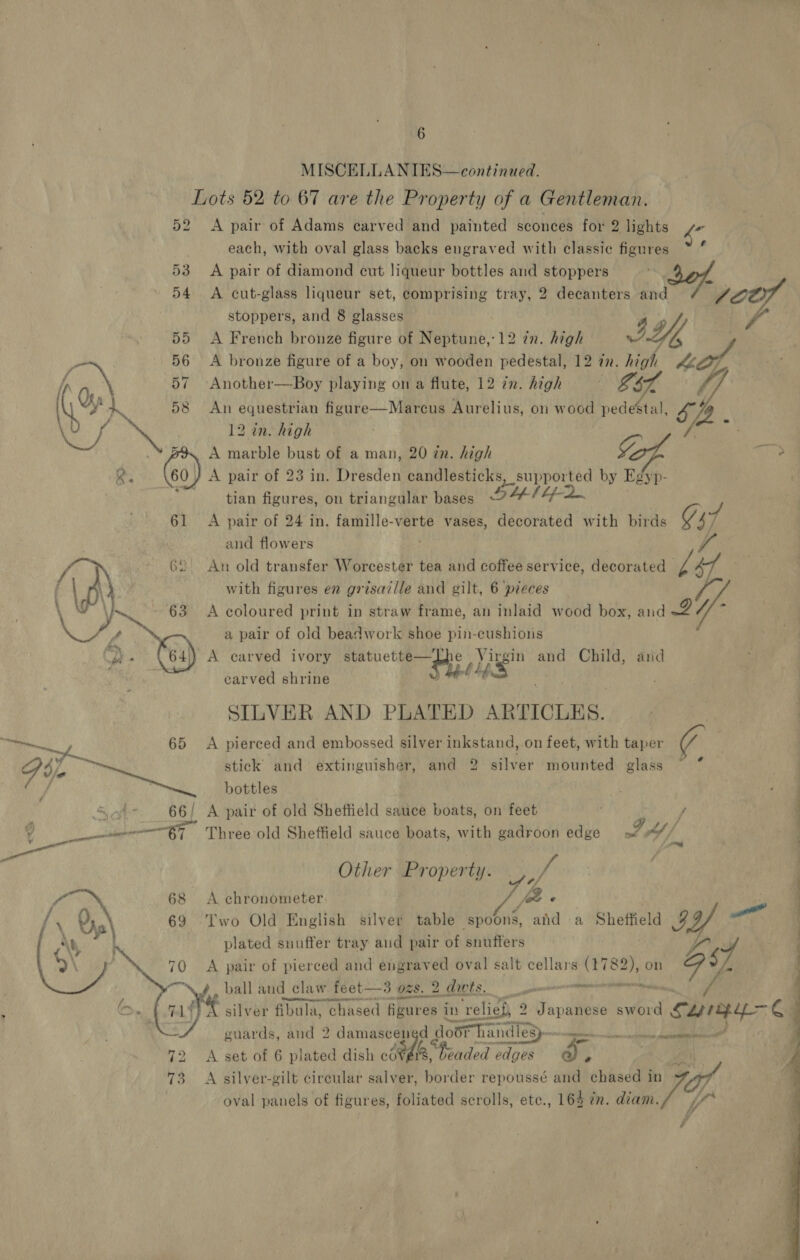 6
MISCELLANIES—continued.
Lots 52 to 67 are the Property of a Gentleman.
52 A pair of Adams carved and painted sconces for 2 lights
each, with oval glass backs engraved with classic figures
53 A pair of diamond cut liqueur bottles and stoppers
54 A cut-glass liqueur set, comprising tray, 2 decanters and
stoppers, and 8 glasses
55 A French bronze figure of Neptune, 12 in. high
56 A bronze figure of a boy, on wooden pedestal, 12 in. high
57 Another—Boy playing on a flute, 12 in. high
58 An equestrian figure—Marcus Aurelius, on wood pedestal,
12 in. high
59 A marble bust of a man, 20 in. high
60 A pair of 23 in. Dresden candlesticks, supported by Egyp-
tian figures, on triangular bases
61 A pair of 24 in. famille-verte vases, decorated with birds
and flowers
62 An old transfer Worcester tea and coffee service, decorated
with figures en grisaille and gilt, 6 pieces
63 A coloured print in straw frame, an inlaid wood box, and
a pair of old beadwork shoe pin-cushions
64 A carved ivory statuette—The Virgin and Child, and
carved shrine
SILVER AND PLATED ARTICLES.
65 A pierced and embossed silver inkstand, on feet, with taper
stick and extinguisher, and 2 silver mounted glass
bottles
66 A pair of old Sheffield sauce boats, on feet
67 Three old Sheffield sauce boats, with gadroon edge
Other Property.
68 A chronometer
69 Two Old English silver table spoons, and a Sheffield
plated snuffer tray and pair of snuffers
70 A pair of pierced and engraved oval salt cellars (1782), on
ball and claw feet—3 ozs. 2 dwts.
71 A silver fibula, chased figures in relief, 2 Japanese sword
guards, and 2 damascened door handles
72 A set of 6 plated dish covers, beaded edges
73 A silver-gilt circular salver, border repoussé and chased in
oval panels of figures, foliated scrolls, etc., 16½ in. diam.